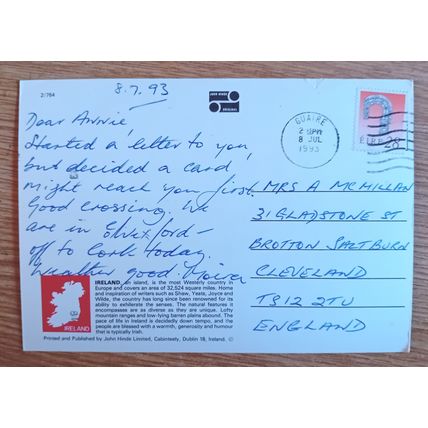 2/764
8.7.93
JOHN HINDE
ORIGINAL
GUAIRE
2-PM
8 JUL
1993
ÉIRE 28
Dear Annie,
Started a letter to you,
but decided a card
might reach you first.
Good crossing. We
are in
off to Cork today.
Weather good. Moira
MRS A MCMILLAN
31 GLADSTONE ST
BROTTON SALTBURN
CLEVELAND
TS12 2TU
ENGLAND
IRELAND
IRELAND, an island, is the most Westerly country in
Europe and covers an area of 32,524 square miles. Home
and inspiration of writers such as Shaw, Yeats, Joyce and
Wilde, the country has long since been renowned for its
ability to exhilarate the senses. The natural features it
encompasses are as diverse as they are unique. Lofty
mountain ranges and low-lying barren plains abound. The
pace of life in Ireland is decidedly down tempo, and the
people are blessed with a warmth, generosity and humour
that is typically Irish.
Printed and Published by John Hinde Limited, Cabinteely, Dublin 18, Ireland. ©